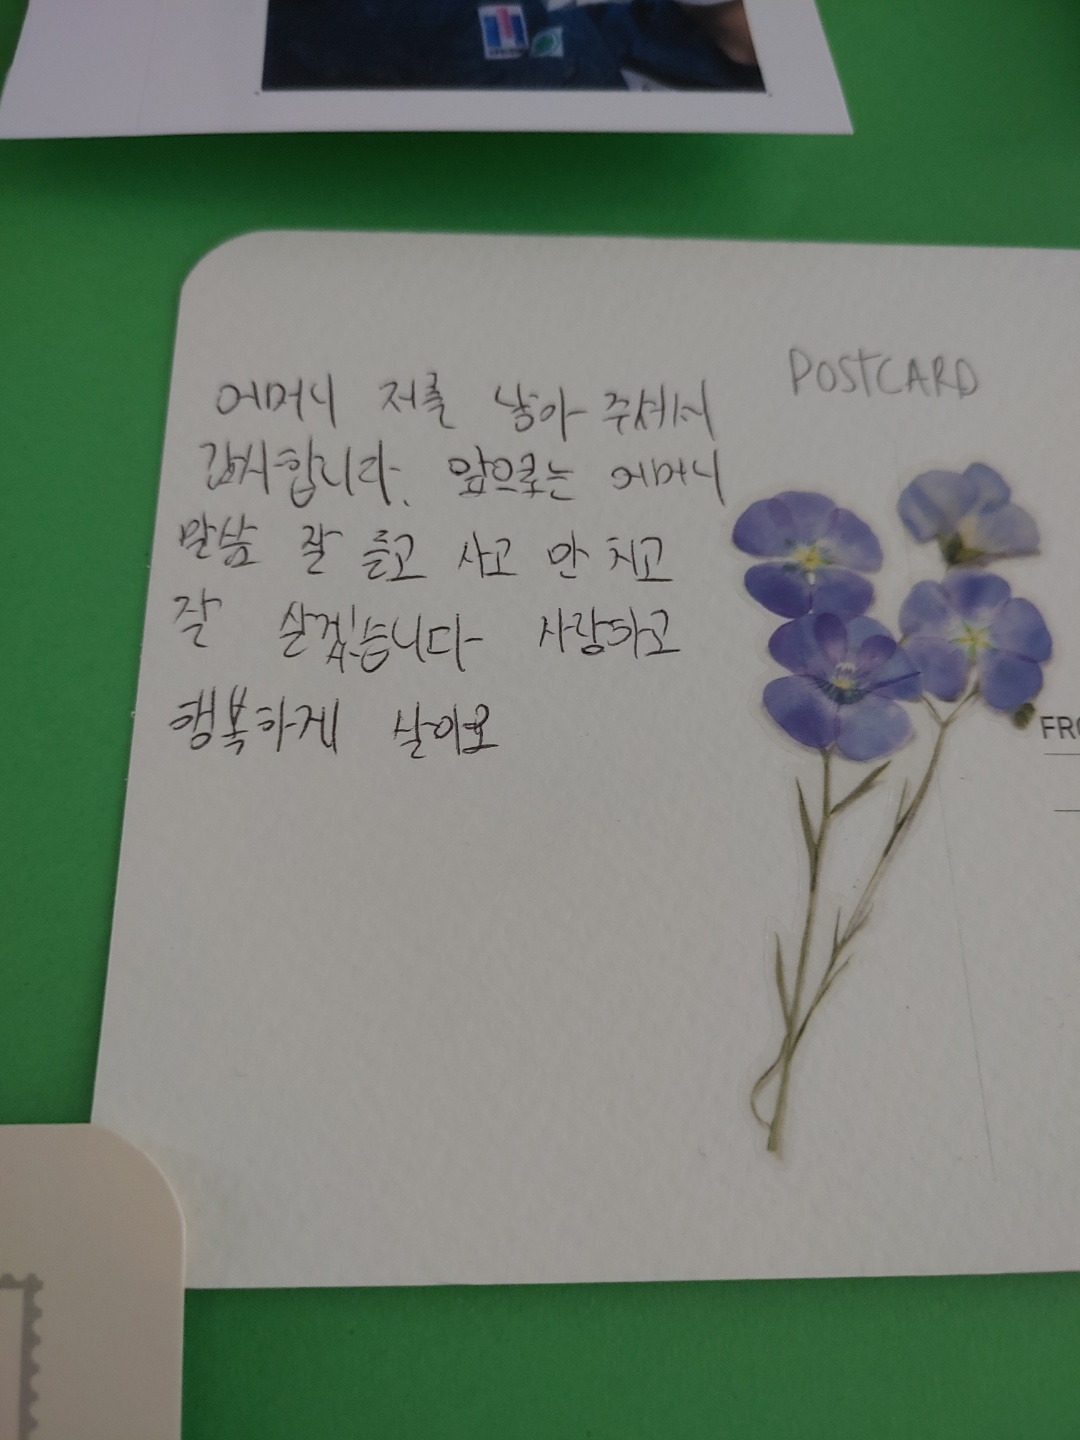 POSTCARD
어머니 저를 낳아 주셔서
감사합니다. 앞으로는 어머니
말씀 잘 듣고 사고 안 치고
잘 살겠습니다 사랑하고
행복하게 살아요
FRO